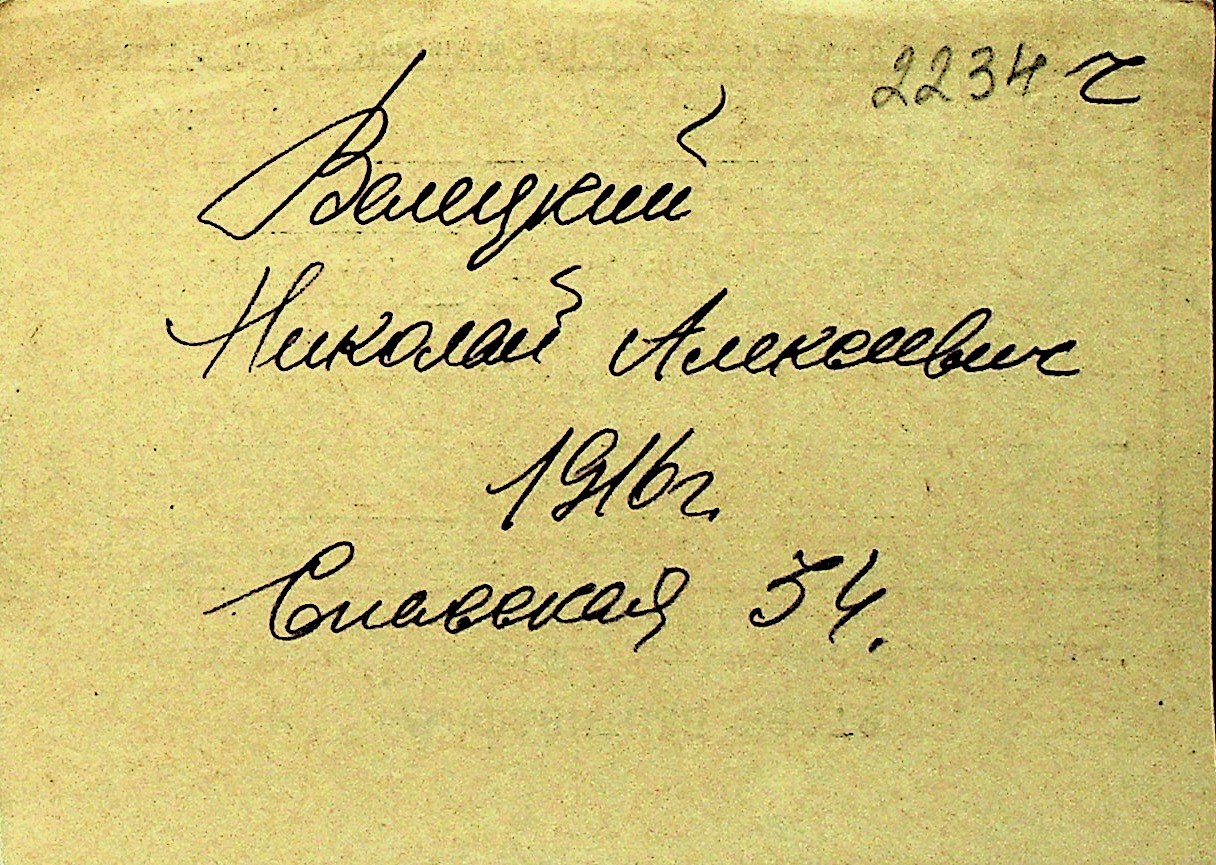 2234 ч
Велецкий
Николай Алексеевич
1916г.
Спасская 54.